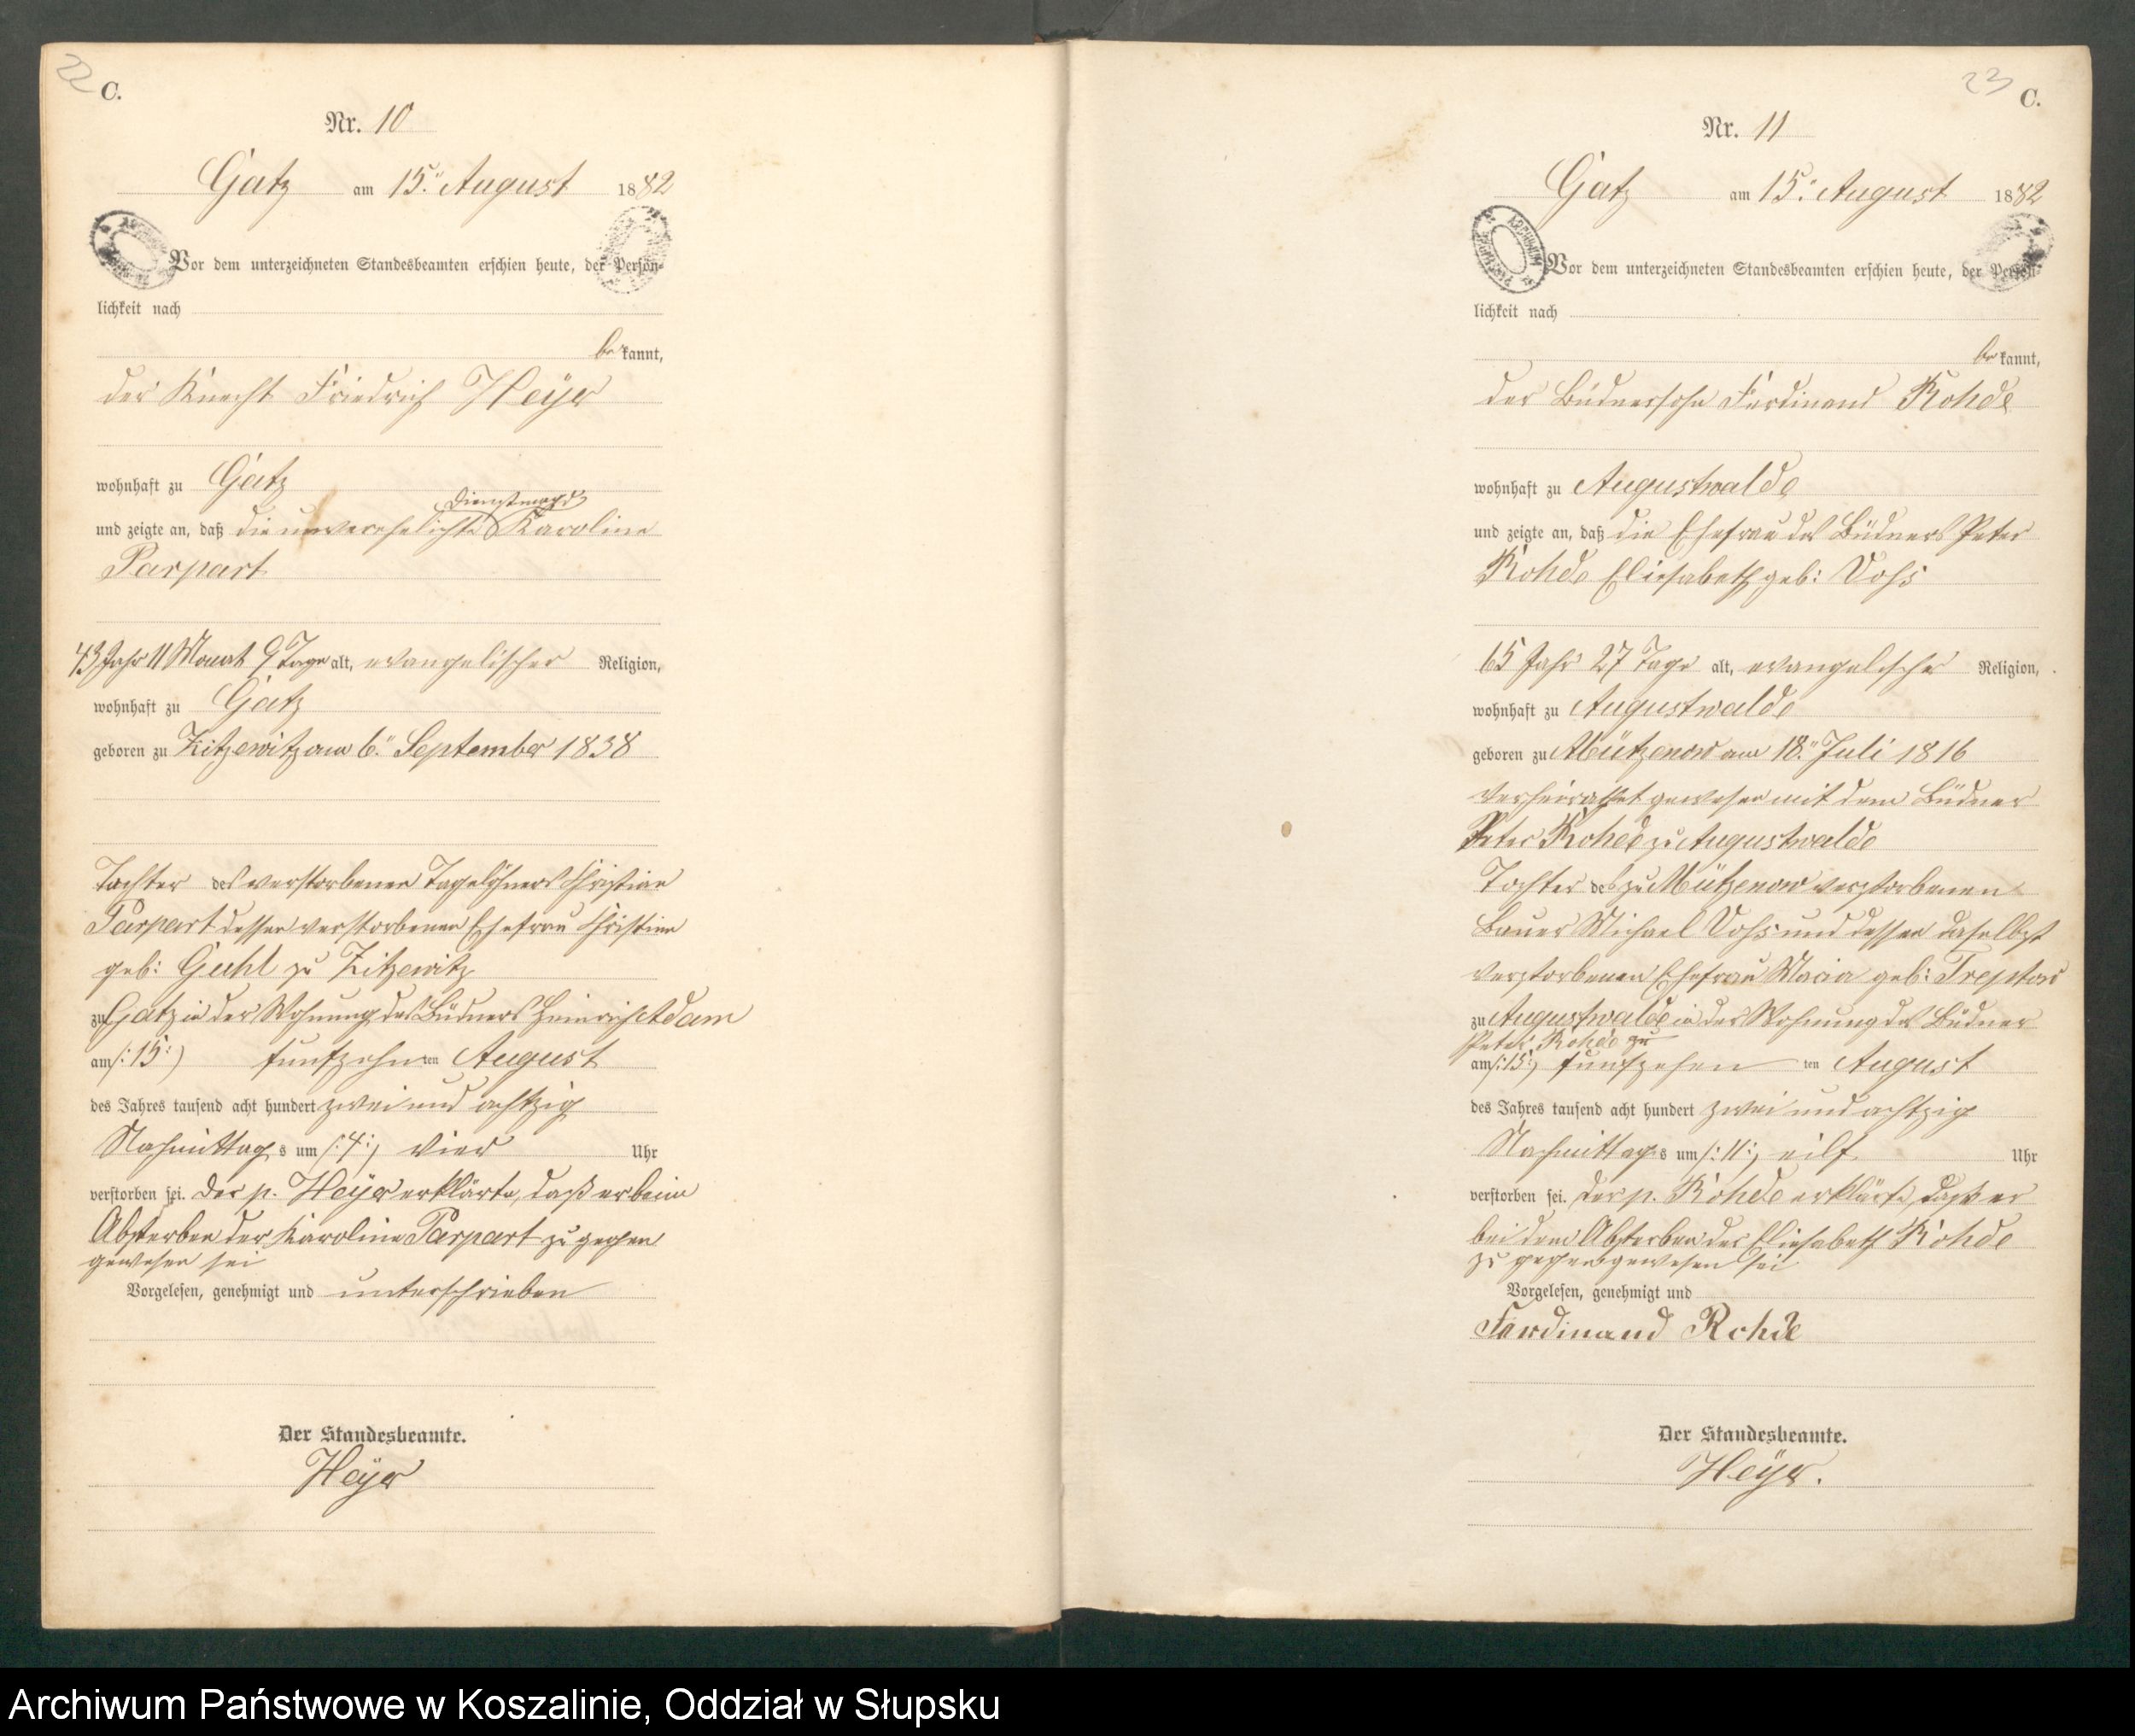 22
C.
Nr. 10
Gatz am 15. August 1882
Vor dem unterzeichneten Standesbeamten erschien heute, der Persön-
lichkeit nach
bekannt,
der Knecht Friedrich Heyer
wohnhaft zu Gatz
Dienstmagd
und zeigte an, daß die unverehelichte Karoline
Parpart
43 Jahr 11 Monat 9 Tage alt, evangelischer Religion,
wohnhaft zu Gatz
geboren zu Zitzewitz am 6. September 1838
Tochter des verstorbenen Tagelöhners Christian
Parpart dessen verstorbenen Ehefrau Christine
geb: Guhl zu Zitzewitz
zu Gatz in der Wohnung des Büdners Heinrich Adam
am /:15:/ fünfzehnten August
des Jahres tausend acht hundert zwei und achtzig
Nachmittags um /:4:/ vier Uhr
verstorben sei. Der p. Heyer erklärte, daß er beim
Absterben der Karoline Parpart zu gegen
gewesen sei
Vorgelesen, genehmigt und unterschrieben
Der Standesbeamte.
Heyer
23
C.
Nr. 11
Gatz am 15. August 1882
ARCHIWUM
Vor dem unterzeichneten Standesbeamten erschien heute, der Persön-
lichkeit nach
bekannt,
der Büdnersohn Ferdinand Rohde
wohnhaft zu Augustwalde
und zeigte an, daß die Ehefrau des Büdners Peter
Rohde Eliesabeth geb: Voss
65 Jahr 27 Tage alt, evangelischer Religion,
wohnhaft zu Augustwalde
geboren zu Mützenow am 18. Juli 1816
verheirathet gewesen mit dem Büdner
Peter Rohde zu Augustwalde
Tochter des zu Mützenow verstorbenen
Bauer Michael Voss und dessen daselbst
verstorbenen Ehefrau Maria geb: Treptow
zu Augustwalde in der Wohnung des Büdner
Peter Rohde zu
am /:15:/ fünfzehen ten August
des Jahres tausend acht hundert zwei und achtzig
Nachmittags um /:11:/ eilf Uhr
verstorben sei. Der p. Rohde erklärte, daß er
bei dem Absterben der Eliesabeth Rohde
zu gegen gewesen sei
Vorgelesen, genehmigt und
Ferdinand Rohde
Der Standesbeamte.
Heyer.
Archiwum Państwowe w Koszalinie, Oddział w Słupsku